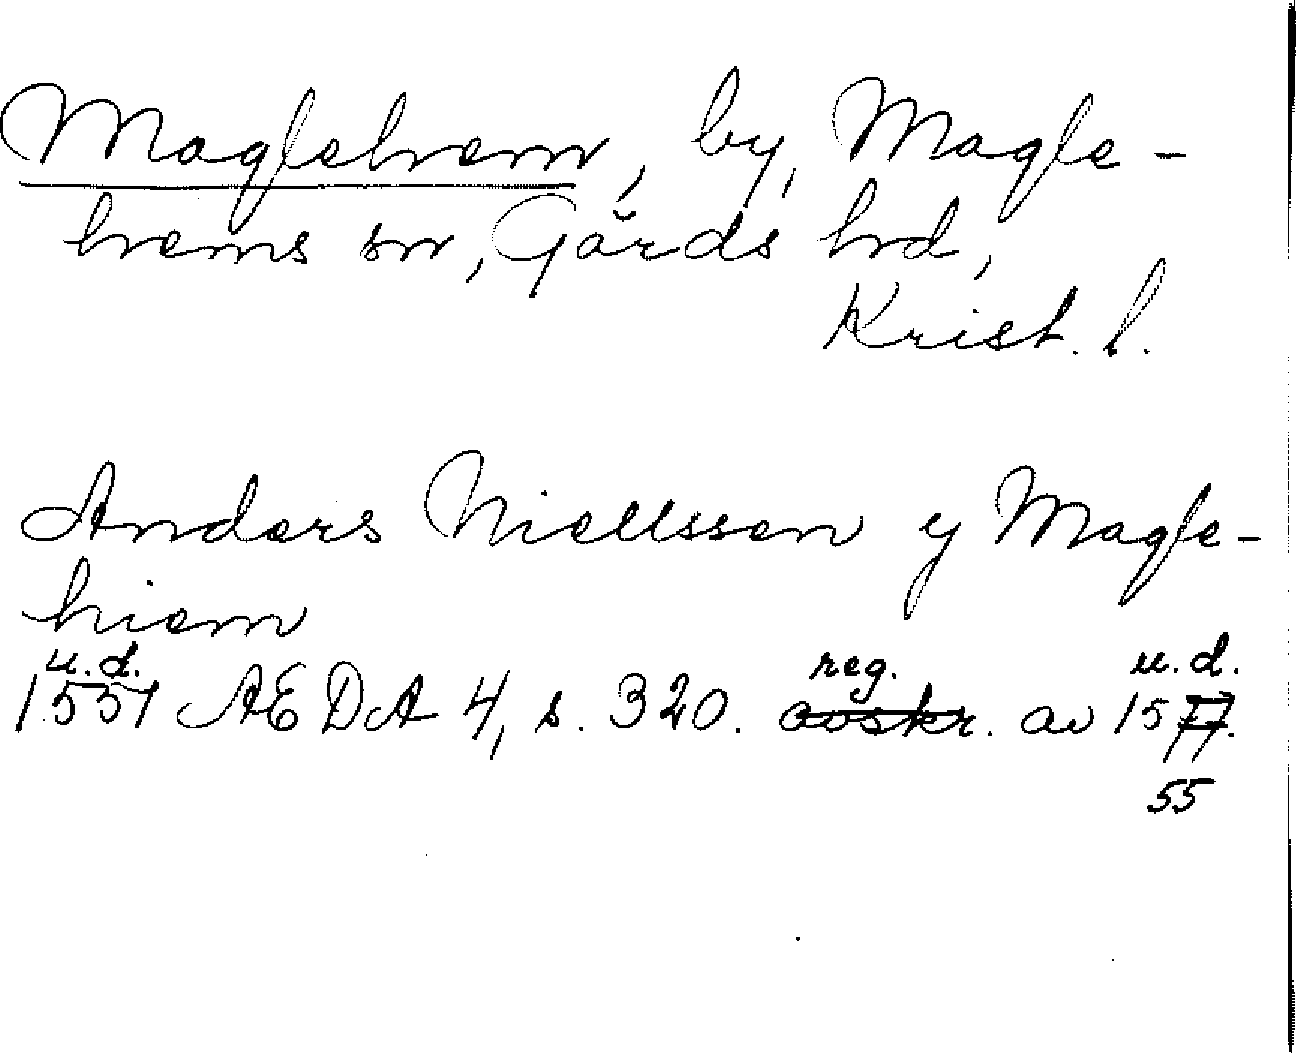 Maglehem, by, Magle-
hems sn, Gärds hd,
Krist. l.
Anders Niellssen y Magle-
hiem
u.d. reg. u.d.
1551 AEDA 4, s. 320. avskr. av 1577.
55